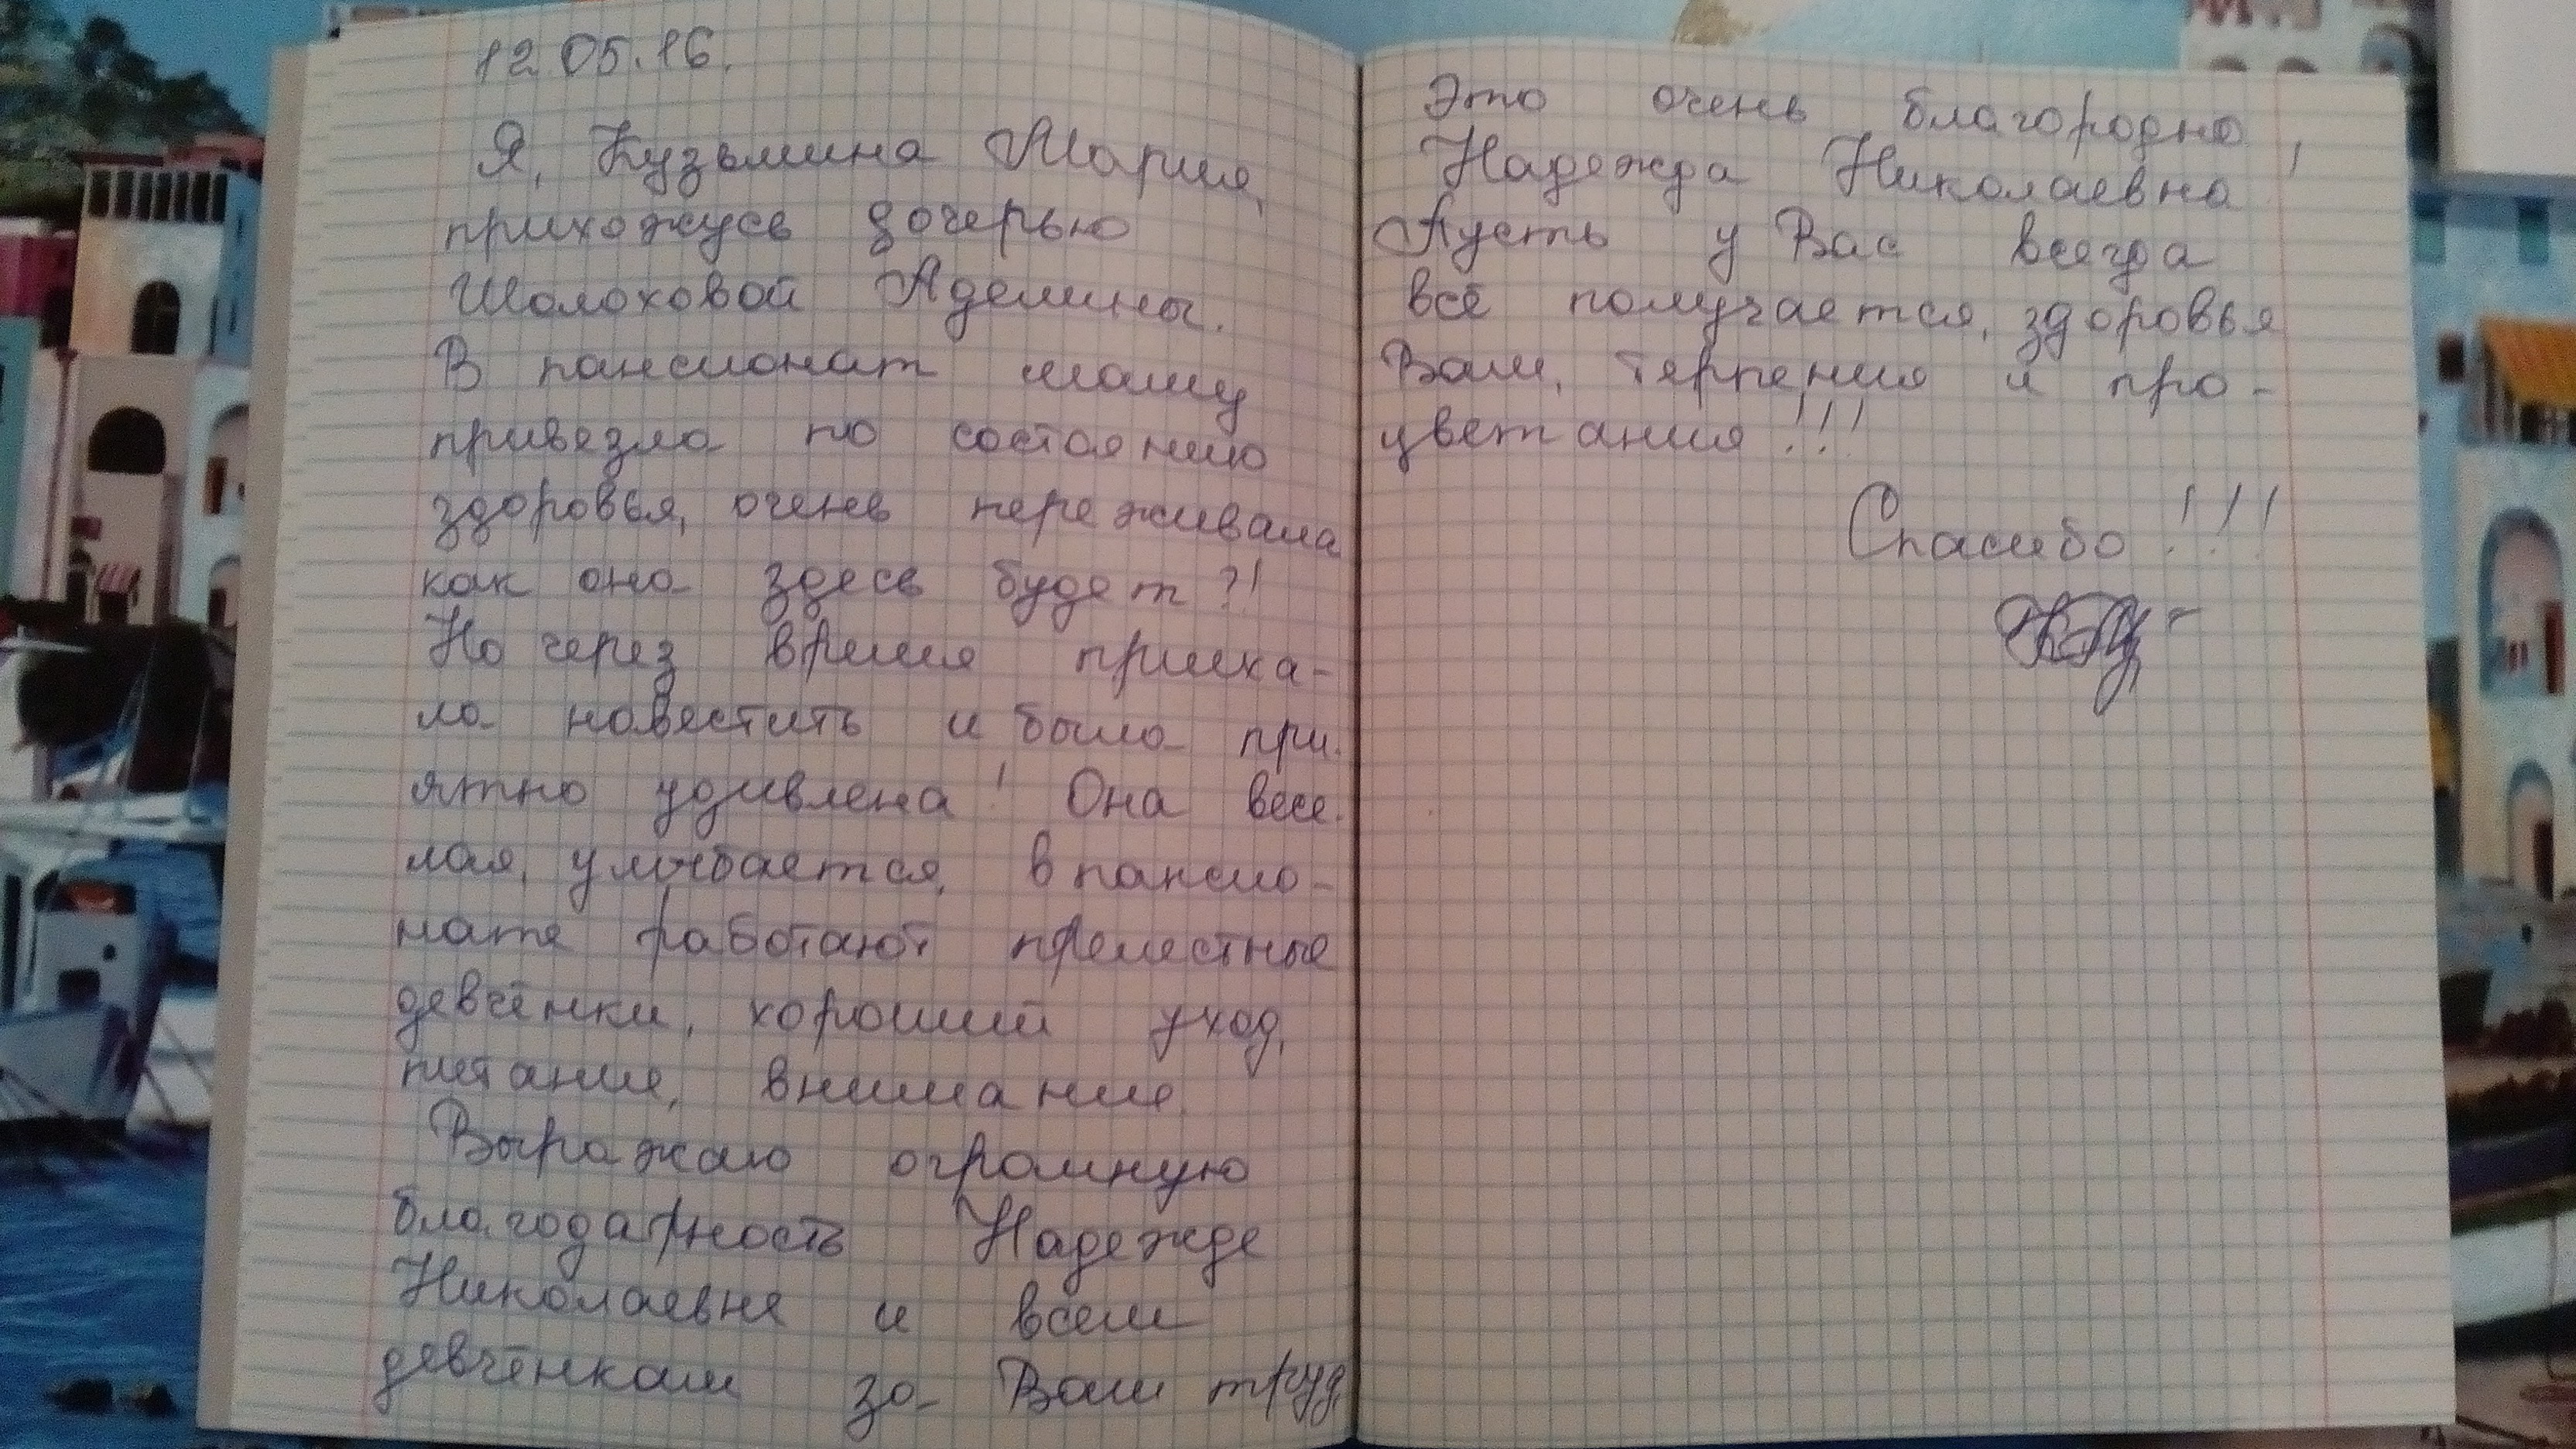 12.05.16.
Я, Кузьмина Мария,
прихожусь дочерью
Шолоховой Аделины.
В пансионат маму
привезла по состоянию
здоровья, очень переживала
как она здесь будет?!
Но через время приеха-
ла навестить и была при-
ятно удивлена! Она весе-
лая, улыбается, в пансио-
нате работают прелестные
девчёнки, хороший уход,
питание, внимание.
Выражаю огромную
благодарность Надежде
Николаевне и всем
девчёнкам за Ваш труд,
Это очень благородно,
Надежда Николаевна!
Пусть у Вас всегда
всё получается, здоровья
Вам, терпения и про-
цветания!!!
Спасибо!!!